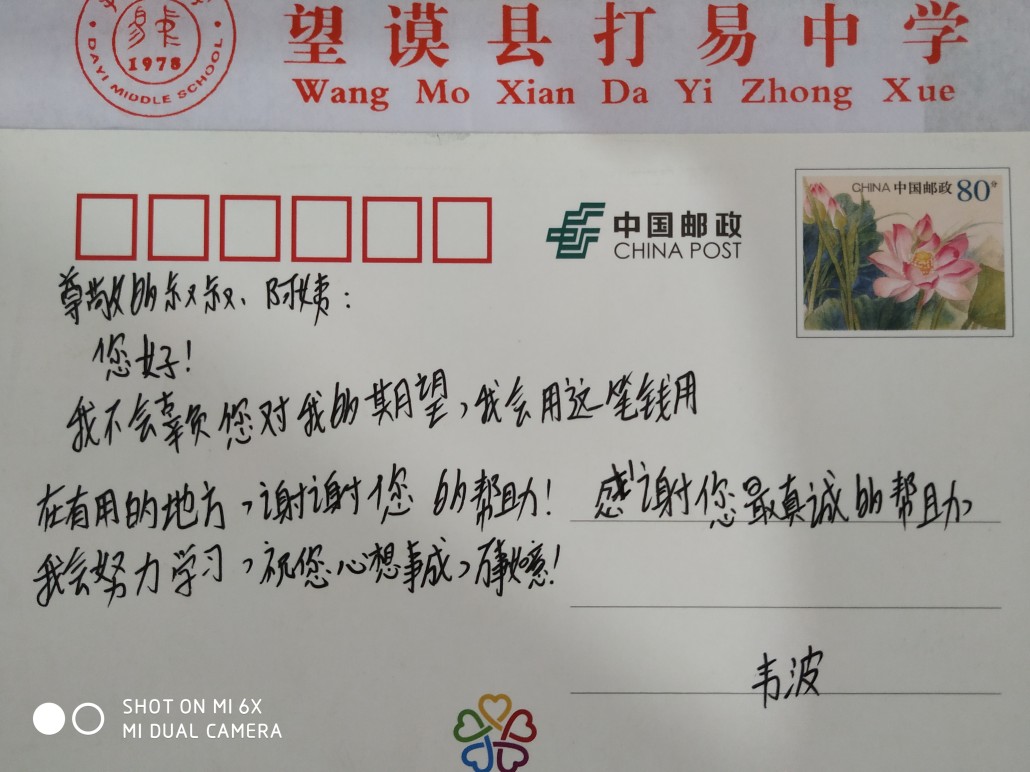 1978
DAYI MIDDLE SCHOOL
望谟县打易中学
Wang Mo Xian Da Yi Zhong Xue
中国邮政
CHINA POST
CHINA 中国邮政 80分
尊敬的叔叔、阿姨：
您好！
我不会辜负您对我的期望，我会用这笔钱用
在有用的地方，谢谢您的帮助！
我会努力学习，祝您心想事成，万事如意！
感谢您最真诚的帮助，
韦波
SHOT ON MI 6X
MI DUAL CAMERA